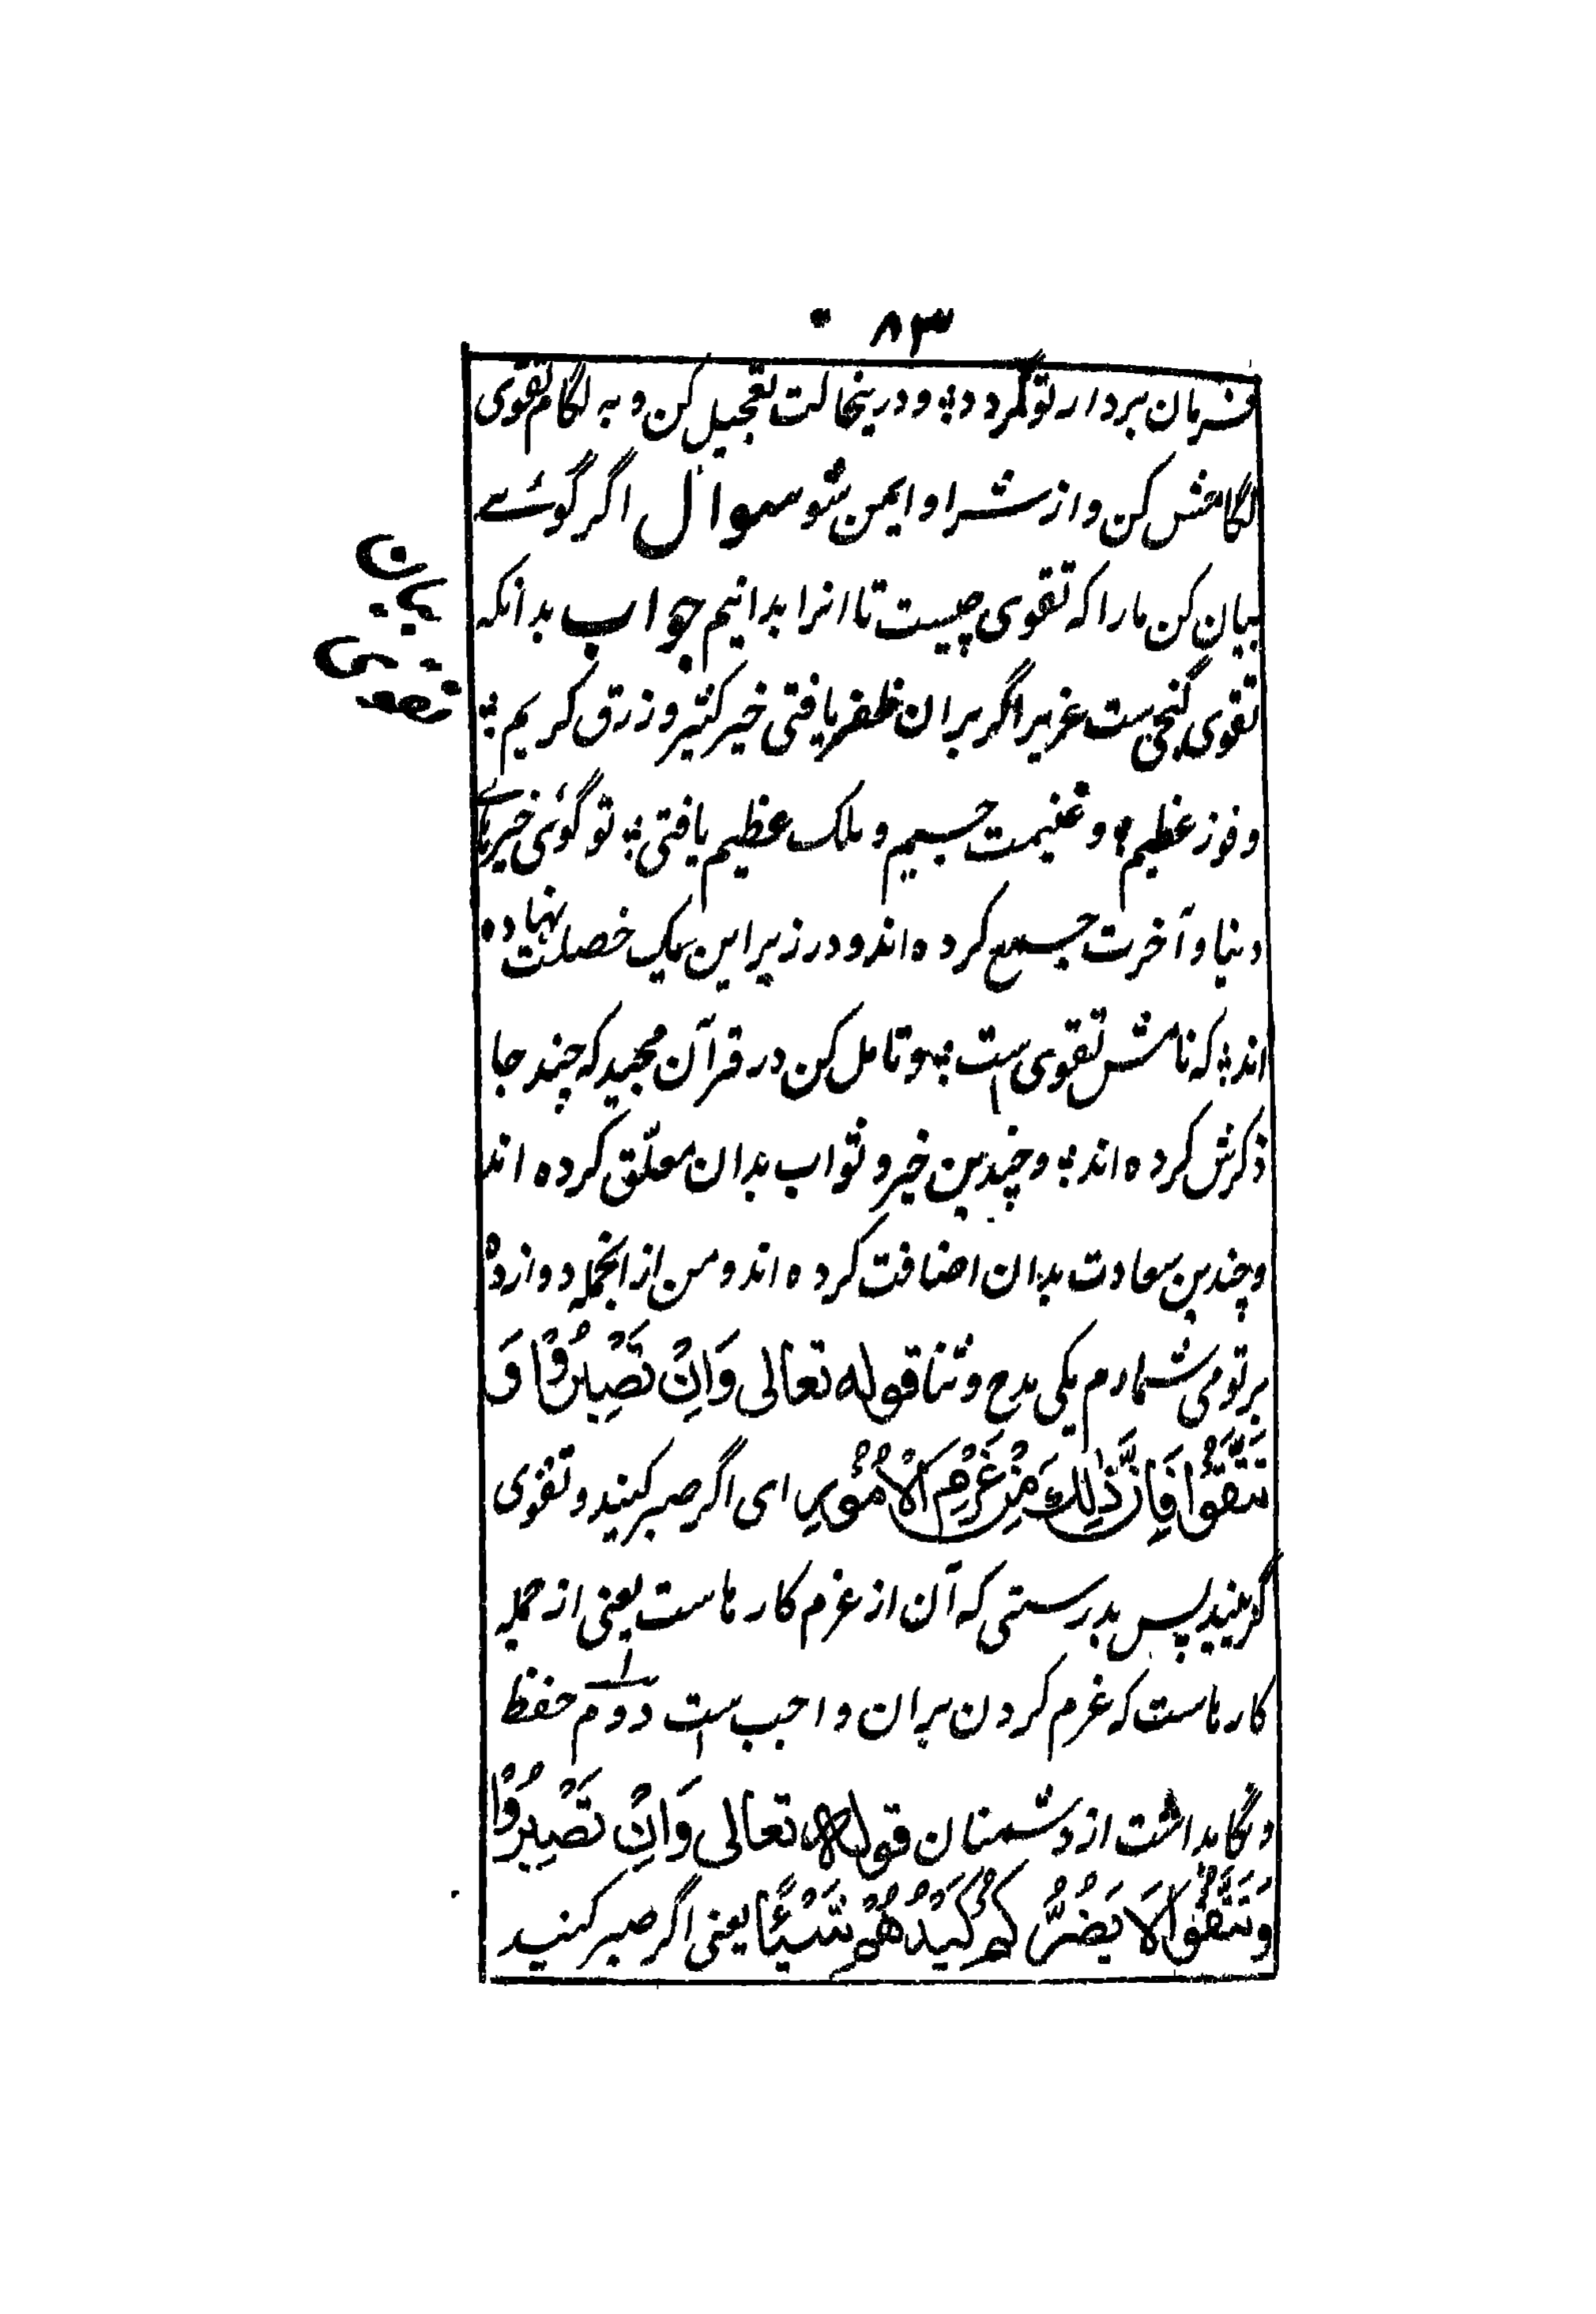 ۸۳
فرمان بردار تو گردد ؛ و درینحالت تعجیل کن و به لگام تقوی
لگامش کن و از شر او ایمن شو سوال اگر گوئے
بیان کن ما را که تقوی چیست تا انرا بدانیم جواب بدانکه
بیان
تقوی
تقوی گنجی ست عزیز اگر بران ظفر یافتی خیر کثیر و رزق کریم ؛
و فوز عظیم ؛ و غنیمت جسیم و ملک عظیم یافتی ؛ تو گوئی خیرہائے
دنیا و آخرت جمع کرده اند و در زیر این یک خصلت نهاده
اند ؛ که نامش تقوی است ؛ و تامل کن در قرآن مجید که چند جا
ذکرش کرده اند ؛ و چندین خیر و ثواب بدان معلّق کرده اند
و چندین سعادت بدان اضافت کرده اند و من از انجمله دوازده
بر تو می شمارم یکی مدح و ثنا قوله تعالی وَاِنْ تَصْبِرُوْا وَ
تَتَّقُوْا فَاِنَّ ذٰلِكَ مِنْ عَزْمِ الْاُمُوْرِ ای اگر صبر کنید و تقوی
گزینید پس بدرستی که آن از عزم کارهاست یعنی از جمله
کارهاست که عزم کردن بران واجب است دوم حفظ
و نگاهداشت از دشمنان قوله تعالی وَاِنْ تَصْبِرُوْا
وَتَتَّقُوْا لَا يَضُرُّكُمْ كَيْدُهُمْ شَيْئًا یعنی اگر صبر کنید